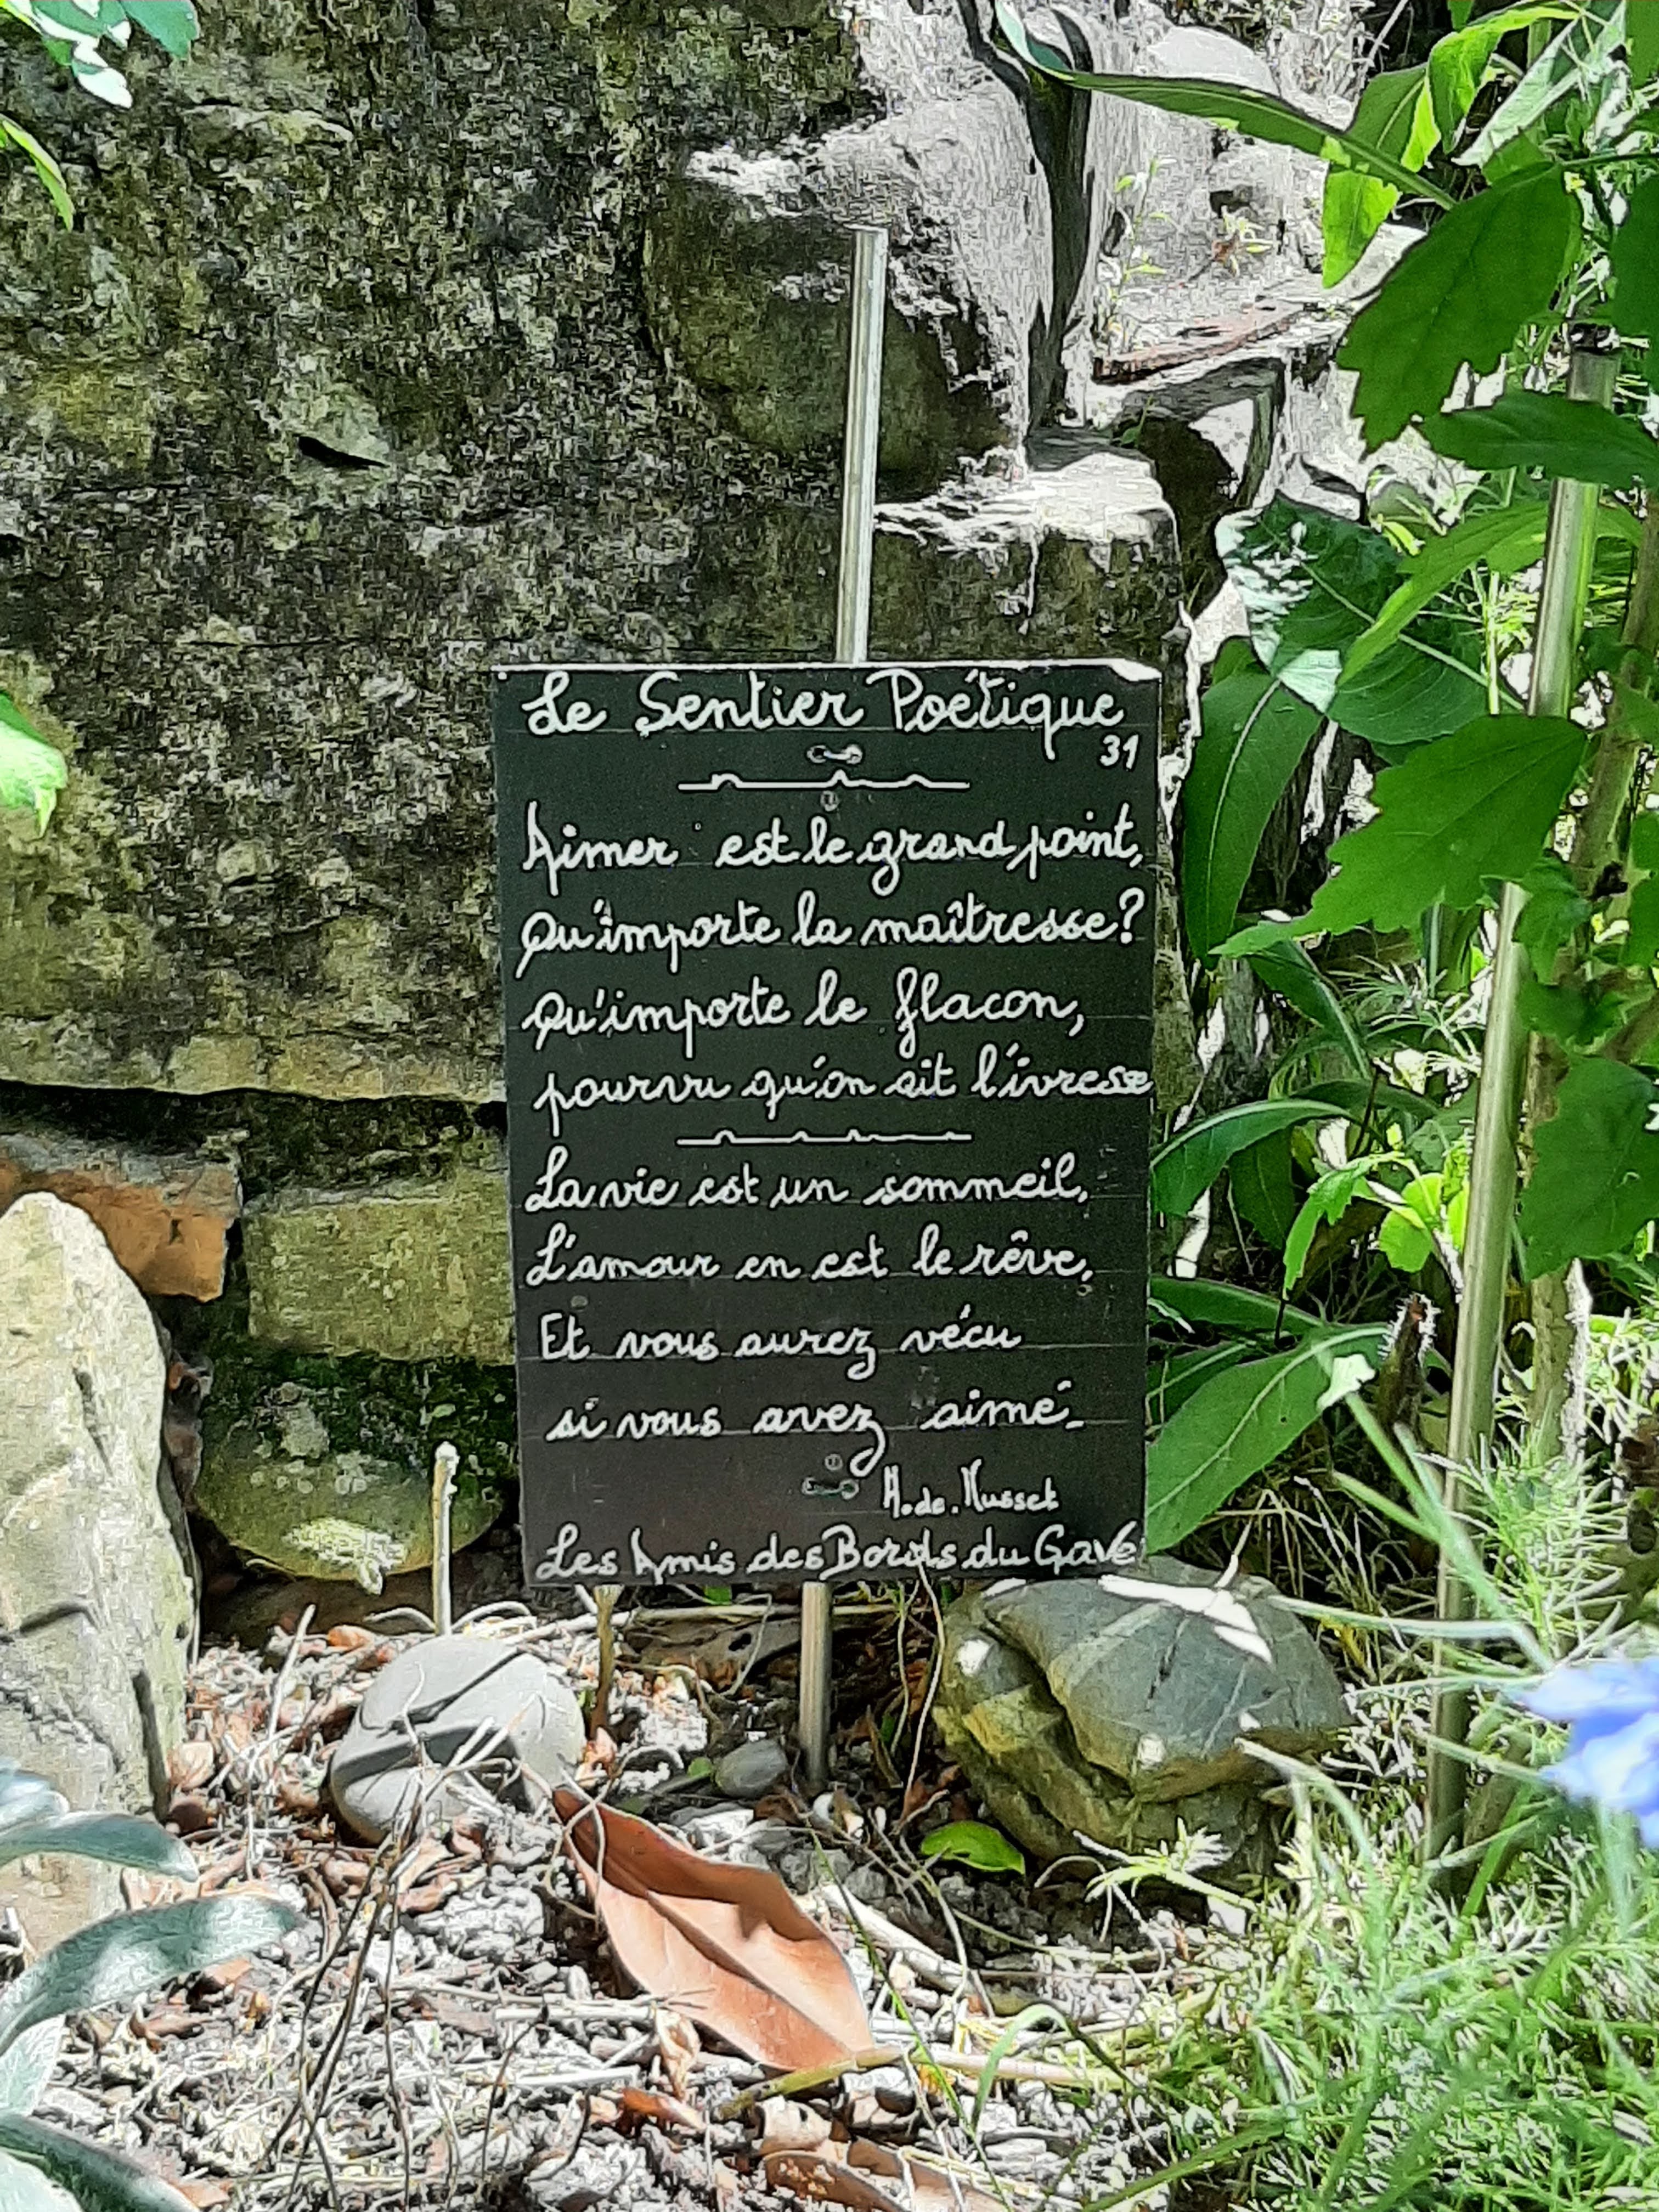 Le Sentier Poétique
31
Aimer est le grand point,
Qu'importe la maîtresse?
Qu'importe le flacon,
pourvu qu'on ait l'ivresse
La vie est un sommeil,
L'amour en est le rêve,
Et vous aurez vécu
si vous avez aimé.
A. de. Musset
Les Amis des Bords du Gave